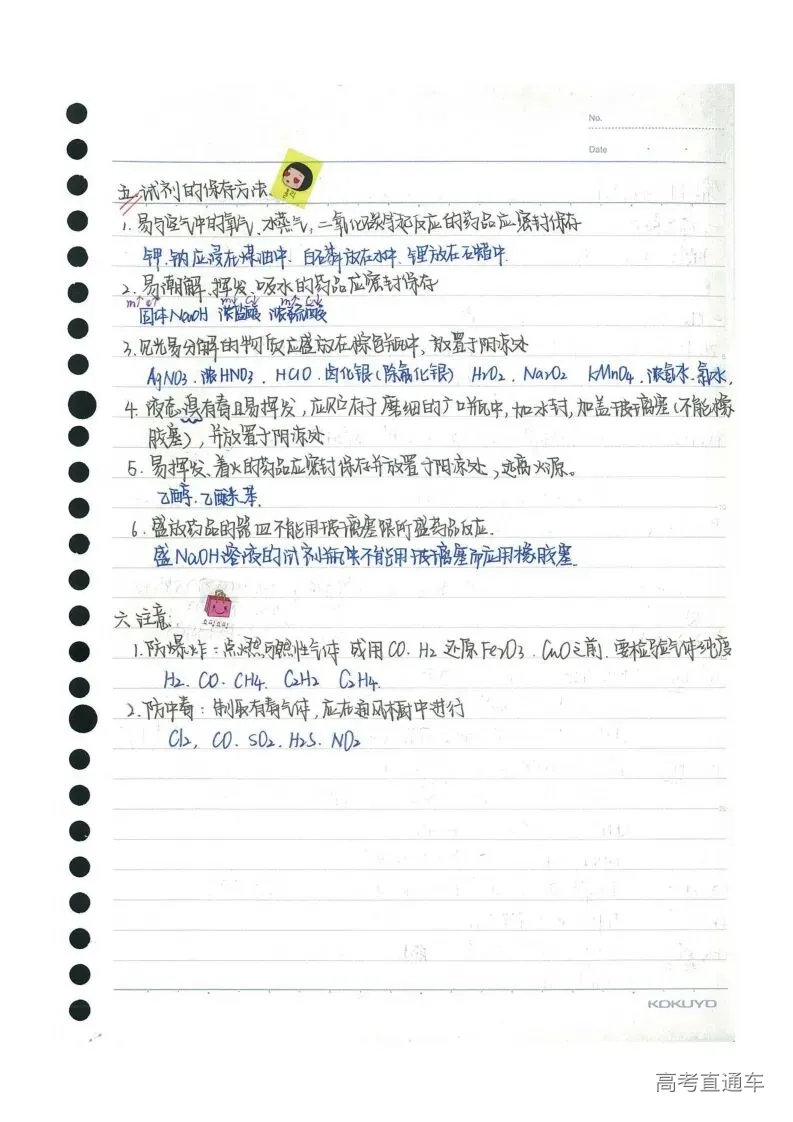 No.
Date
五.试剂的保存方法.
1.易与空气中的氧气、水蒸气,二氧化碳等起反应的药品应密封保存
钾.钠应浸在煤油中.白磷放在水中.锂放在石蜡中.
2.易潮解、挥发、吸水的药品应密封保存
m↑ c↑ m↓ c↓ m↑ c↓
固体NaOH 浓盐酸 浓硫酸
3.见光易分解的物质应盛放在棕色瓶中,放置于阴凉处
AgNO3.浓HNO3.HClO.卤化银(除氟化银) H2O2.Na2O2 KMnO4.浓氨水.氯水.
4.液态 有毒且易挥发,应贮存于磨细的广口瓶中,加水封,加盖玻璃塞(不能橡
胶塞),并放置于阴凉处
5.易挥发、着火的药品应密封保存并放置于阴凉处,远离火源。
乙醇.乙醚.苯.
6.盛放药品的器皿不能用玻璃塞跟所盛药品反应.
盛NaOH溶液的试剂瓶 不能用玻璃塞而应用橡胶塞.
六.注意.
1.防爆炸:点燃可燃性气体 或用CO.H2还原Fe2O3.CuO之前.要检验气体纯度
H2.CO.CH4.C2H2 C2H4.
2.防中毒:制取有毒气体,应在通风橱中进行
Cl2,CO.SO2.H2S.NO2
KOKUYO
高考直通车